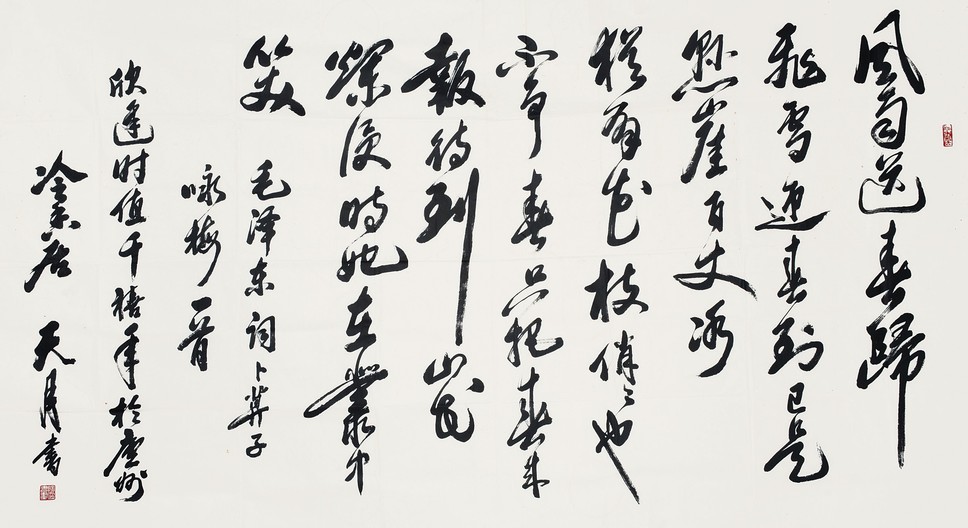 风雨送春歸
飛雪迎春到已是
悬崖百丈冰
猶有花枝俏〻也
不争春只把春来
報待到山花
爛漫時她在叢中
笑
毛泽东词卜算子
咏梅一首
欣逢时值千禧年於州
居 天月書